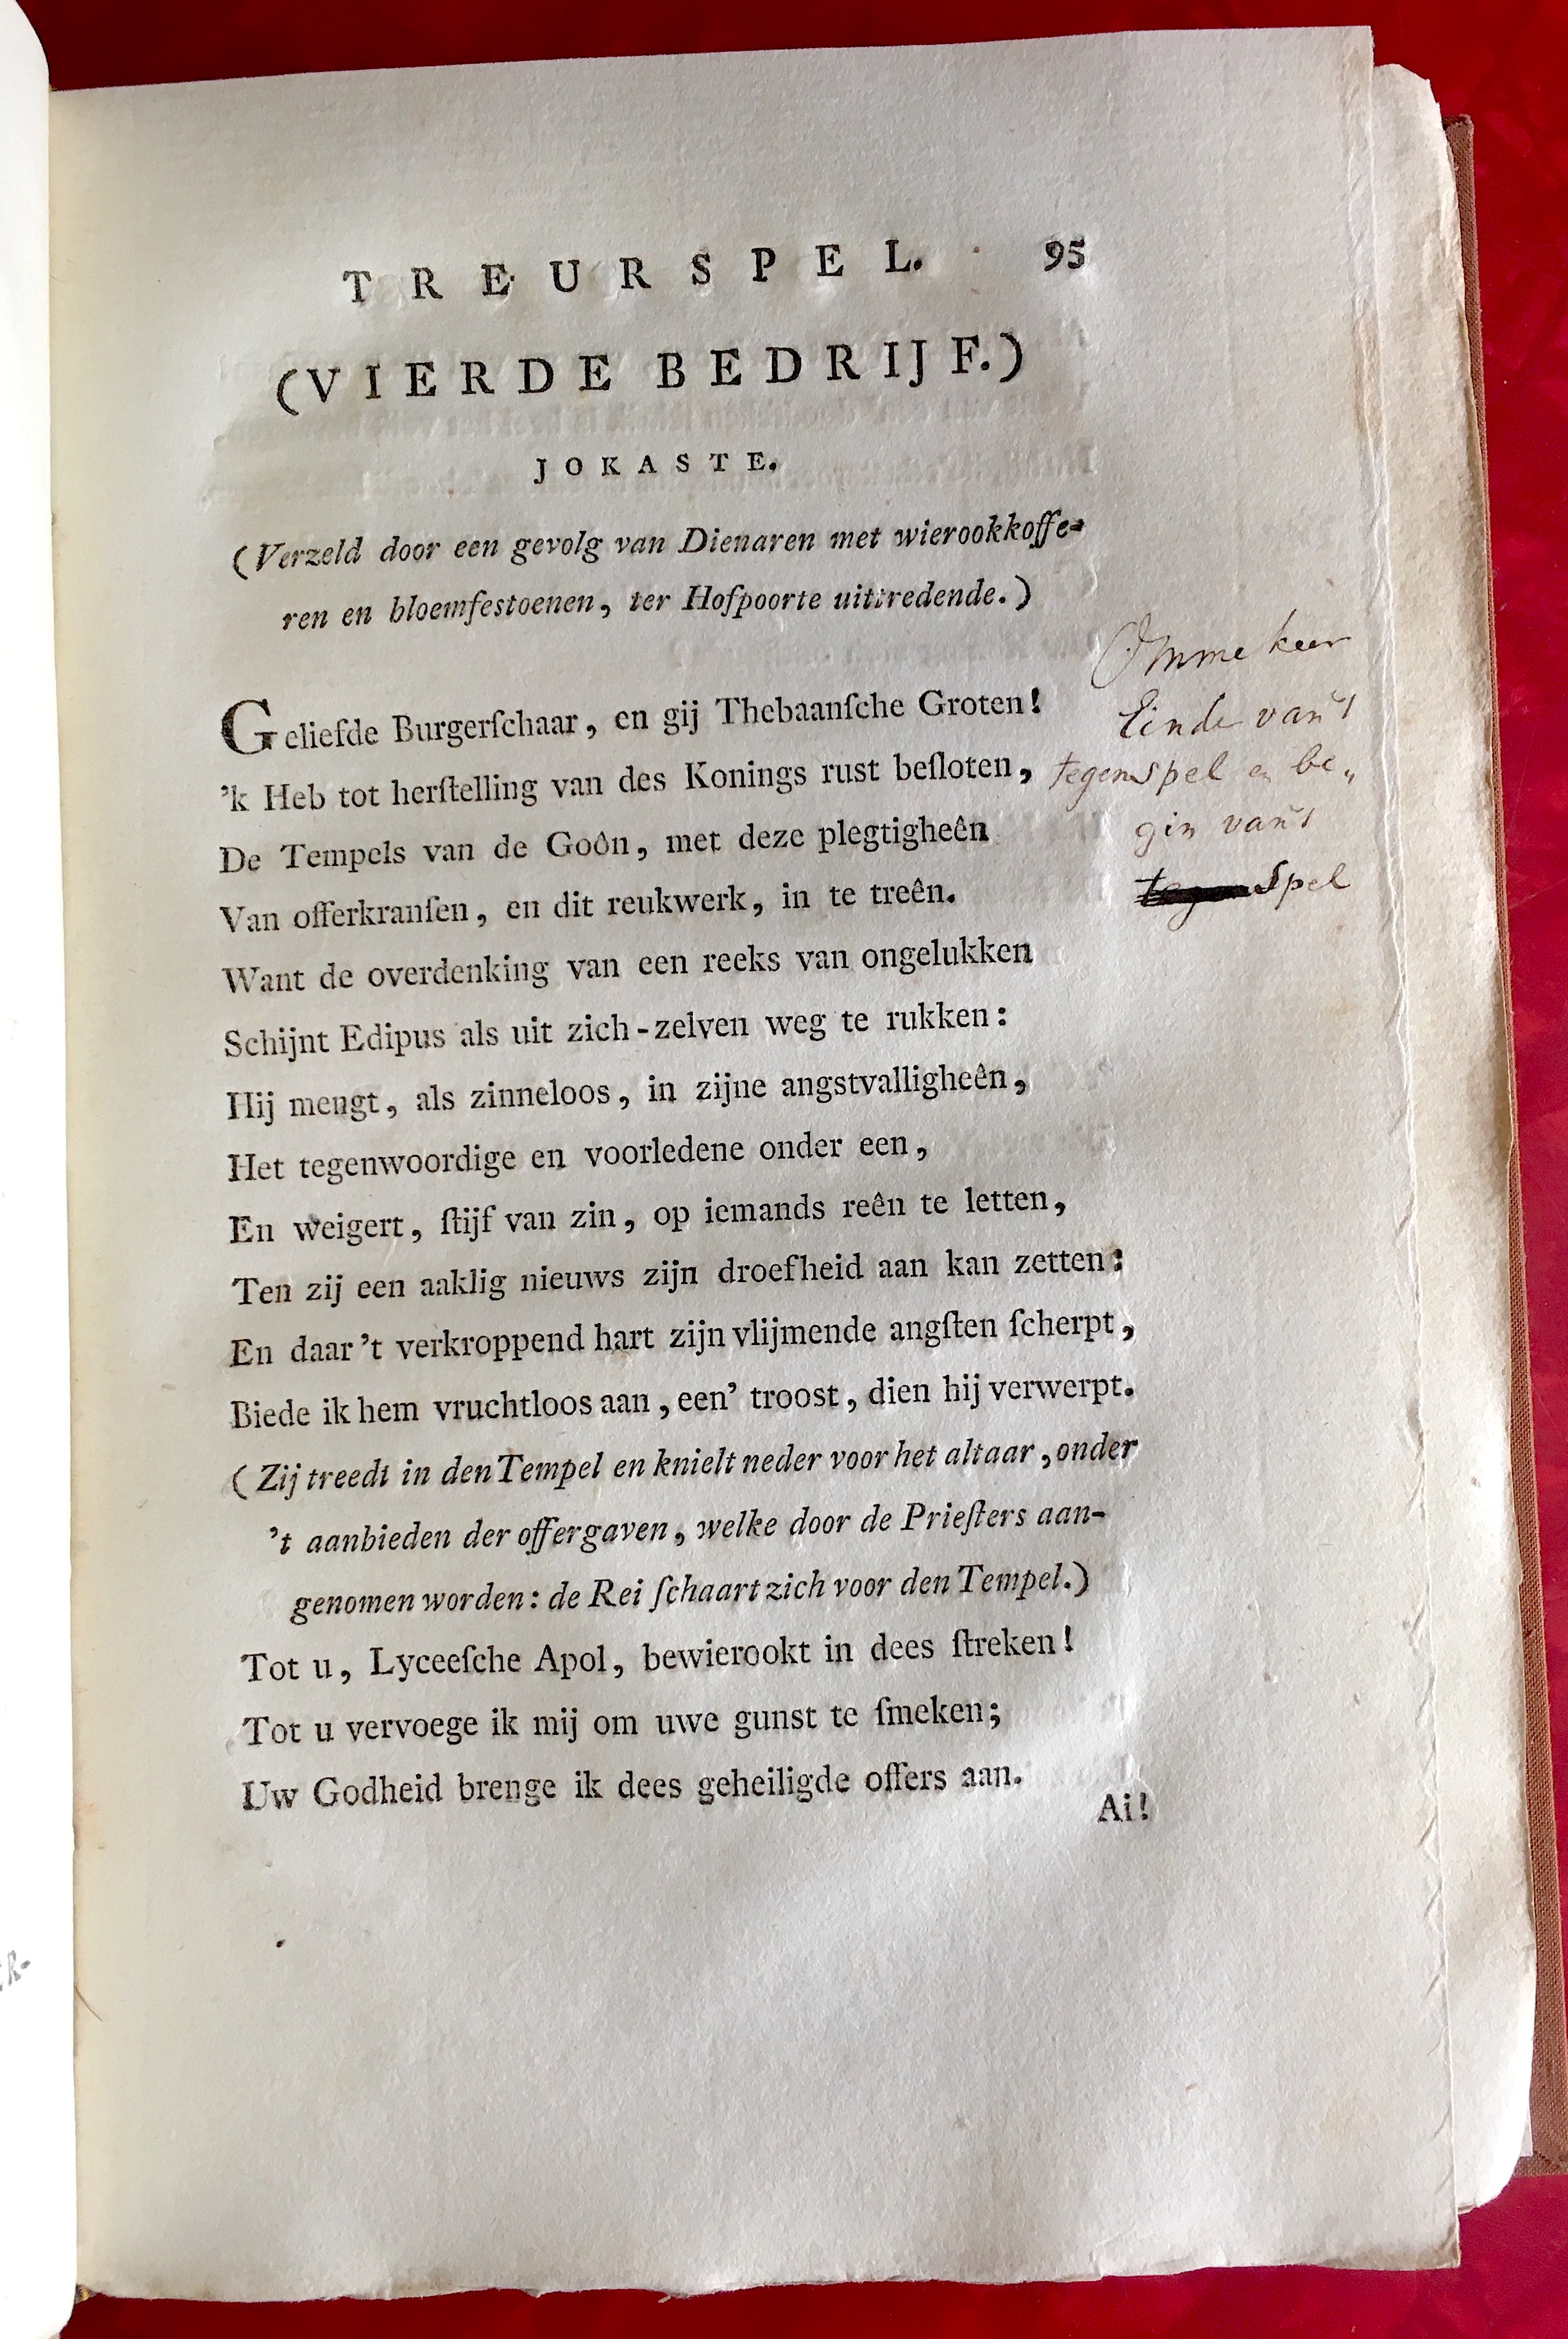 TREURSPEL. 95
(VIERDE BEDRIJF.)
JOKASTE.
(Verzeld door een gevolg van Dienaren met wierookkoffe-
ren en bloemfestoenen, ter Hofpoorte uittredende.)
Geliefde Burgerſchaar, en gij Thebaanſche Groten!
'k Heb tot herſtelling van des Konings rust beſloten,
De Tempels van de Goôn, met deze plegtigheên
Van offerkranſen, en dit reukwerk, in te treên.
Want de overdenking van een reeks van ongelukken
Schijnt Edipus als uit zich-zelven weg te rukken:
Hij mengt, als zinneloos, in zijne angstvalligheên,
Het tegenwoordige en voorledene onder een,
En weigert, ſtijf van zin, op iemands reên te letten,
Ten zij een aaklig nieuws zijn droefheid aan kan zetten:
En daar 't verkroppend hart zijn vlijmende angſten ſcherpt,
Biede ik hem vruchtloos aan, een' troost, dien hij verwerpt.
(Zij treedt in den Tempel en knielt neder voor het altaar, onder
't aanbieden der offergaven, welke door de Prieſters aan-
genomen worden: de Rei ſchaart zich voor den Tempel.)
Tot u, Lyceeſche Apol, bewierookt in dees ſtreken!
Tot u vervoege ik mij om uwe gunst te ſmeken;
Uw Godheid brenge ik dees geheiligde offers aan.
Ai!
Ommekeer
Einde van't
tegenspel en be„
gin van't
tegenspel